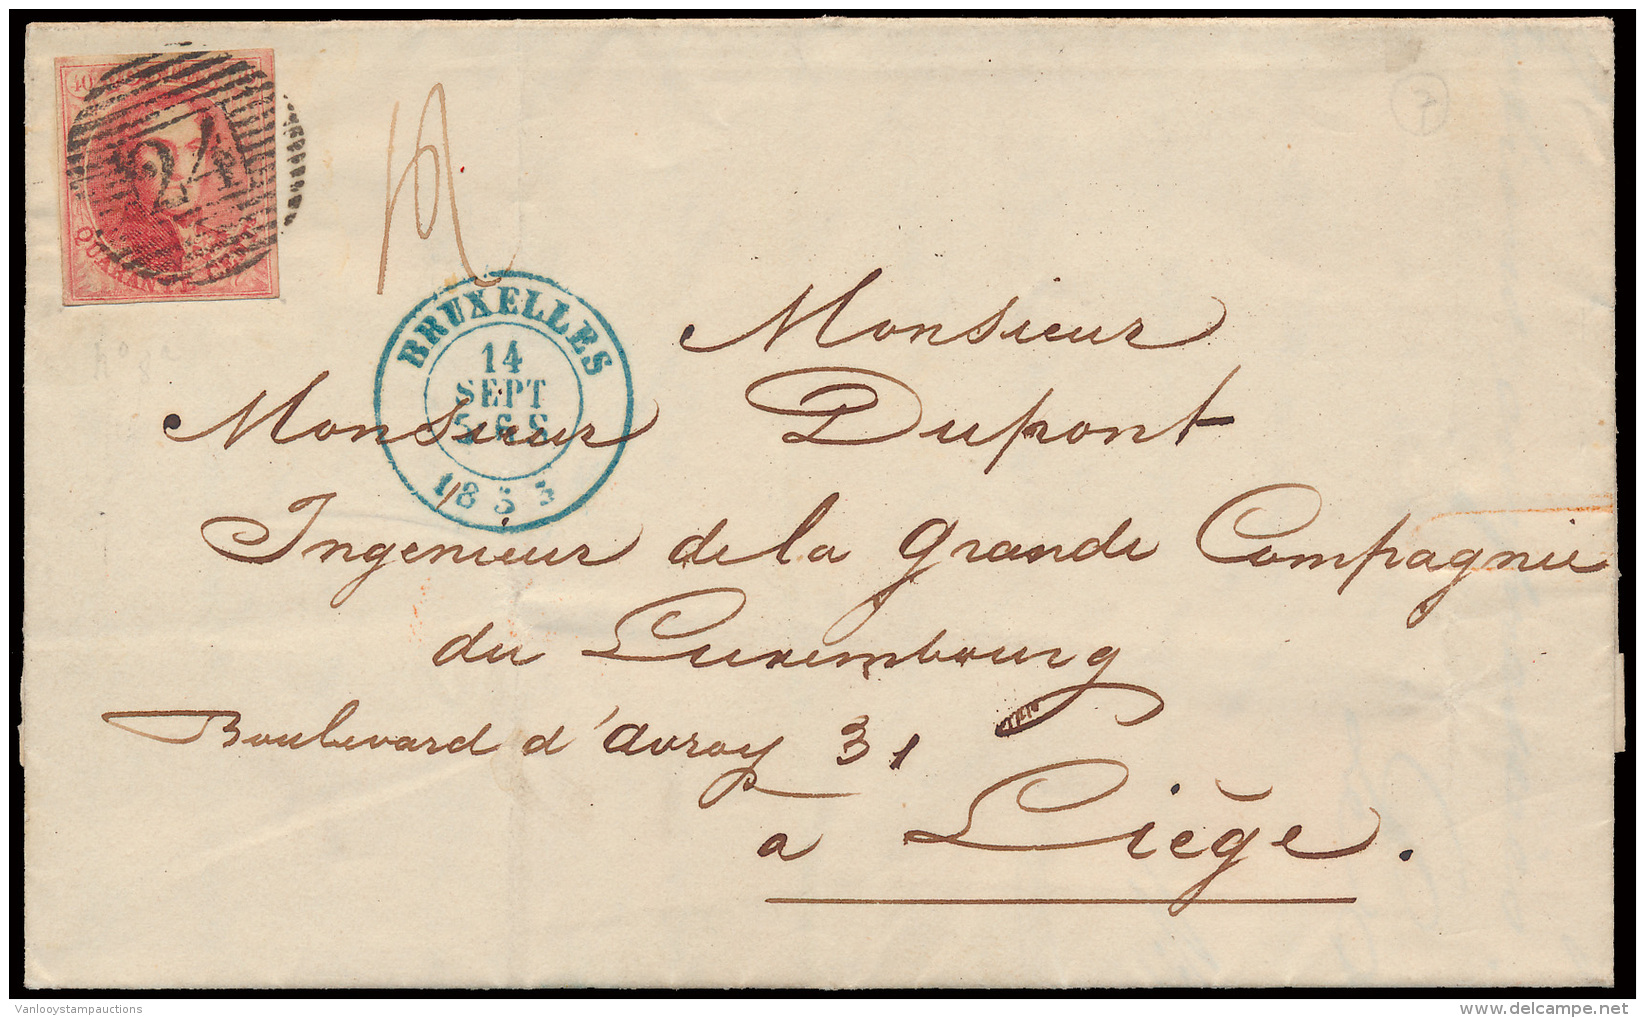 40
24
QUARANTE CENTS
BRUXELLES
14
SEPT
1853
Monsieur
Monsieur Dupont
Ingenieur de la grande Compagnie
du Luxembourg
Boulevard d'avroy 31
a Liège.
Vanlooystampauctions
delcampe.net